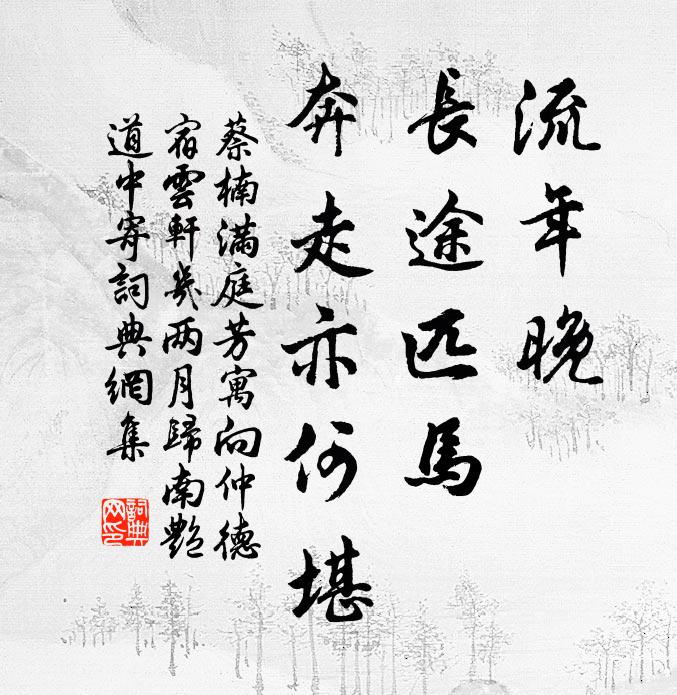 流年晚
長途匹馬
奔走亦何堪
蔡楠滿庭芳寓向仲德
宿雲軒幾两月歸南艷
道中寄詞典網集
詞典
网印